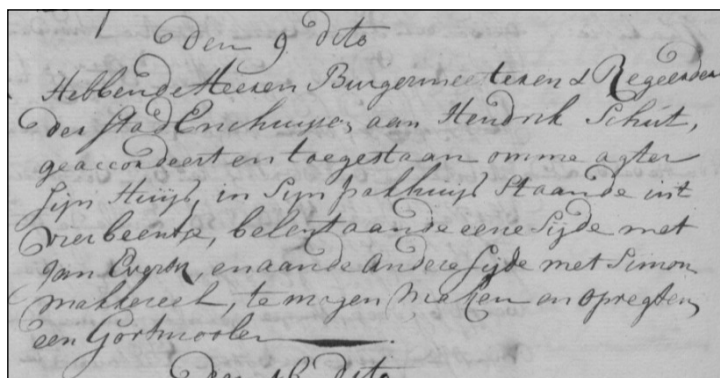 den 9 dito
Hebben de Heeren Burgermeesteren & Regeerders
der stad Enchuijsen, aan Hendrik Schut,
geaccordeert en toegestaan omme agter
sijn Huijs, in Sijn pakhuijs Staande int
vierbeentje, belent aan de eene Sijde met
Jan Evertsz, en aan de Andere Sijde met Simon
makkereel, te mogen Maken en opregten,
een Gortmoolen
Den 16 dito